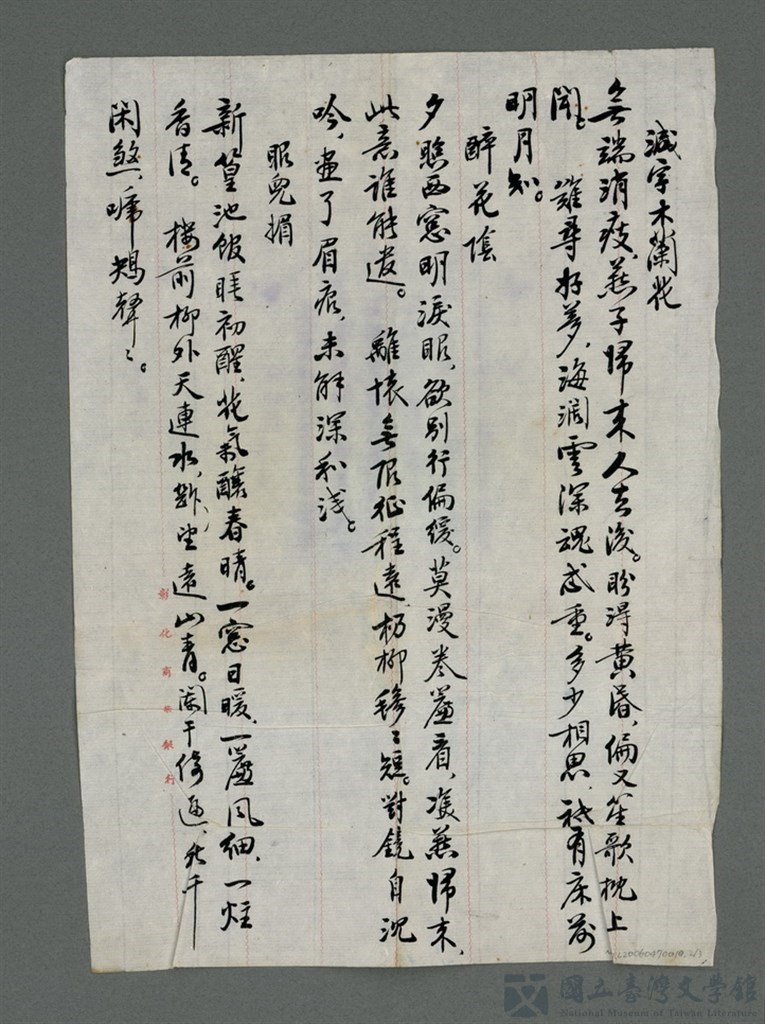 減字木蘭花
無端消瘦,燕子歸來人去後。盼得黃昏,偏又笙歌枕上
聞。 難尋好夢,海濶雲深魂忒重。多少相思,祗有床前
明月知。
醉花陰
夕照西窓明淚眼,欲別行偏緩。莫漫卷簾看,雙燕歸來,
此意誰能遣。 離懷無限征程遠,楊柳毿〻短。對鏡自沉
吟,畫了眉痕,未解深和淺。
眼兒媚
新篁池館睡初醒,花氣釀春晴。一窓日暖,一簾風細,一炷
香清。 樓前柳外天連水,望遠山青。闌干倚遍,秋千
閑煞,啼鴂聲〻。
彰化商業銀行
國立臺灣文學館
National Museum of Taiwan Literature